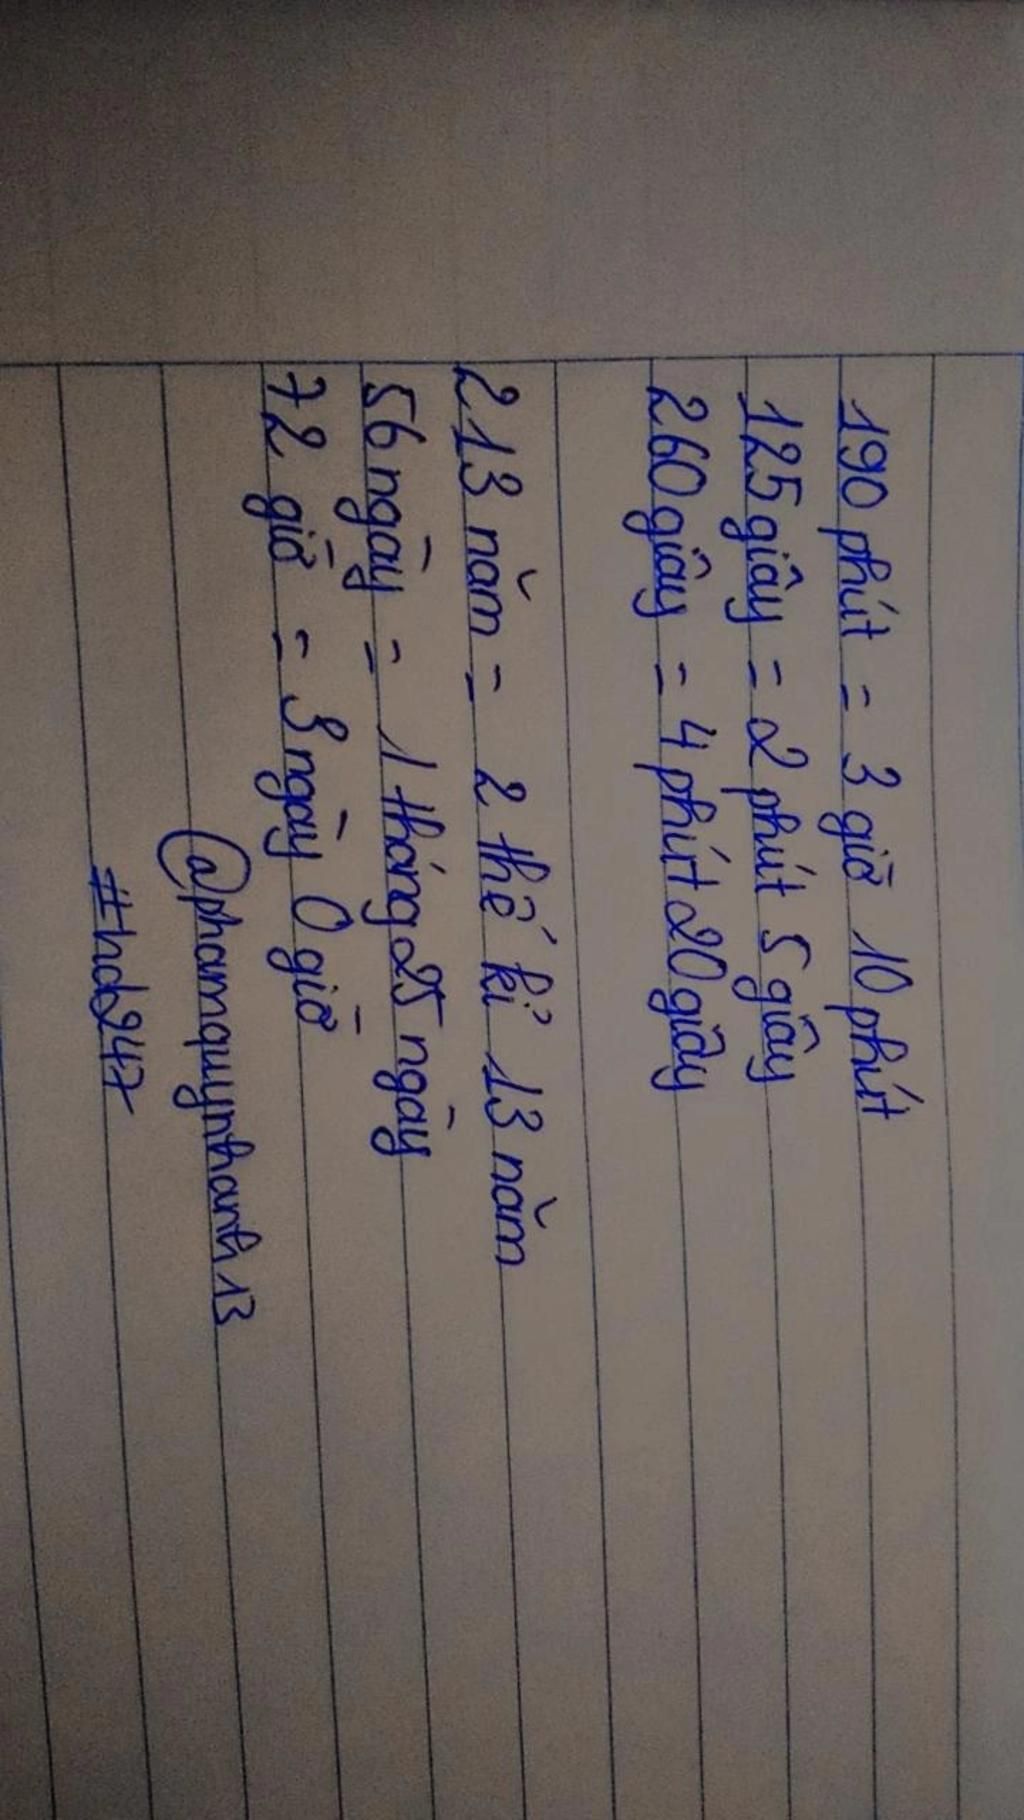 190 phút = 3 giờ 10 phút
125 giây = 2 phút 5 giây
260 giây = 4 phút 20 giây
213 năm = 2 thế kỉ 13 năm
56 ngày = 1 tháng 25 ngày
72 giờ = 3 ngày 0 giờ
@phamquynhanh13
#hdt247